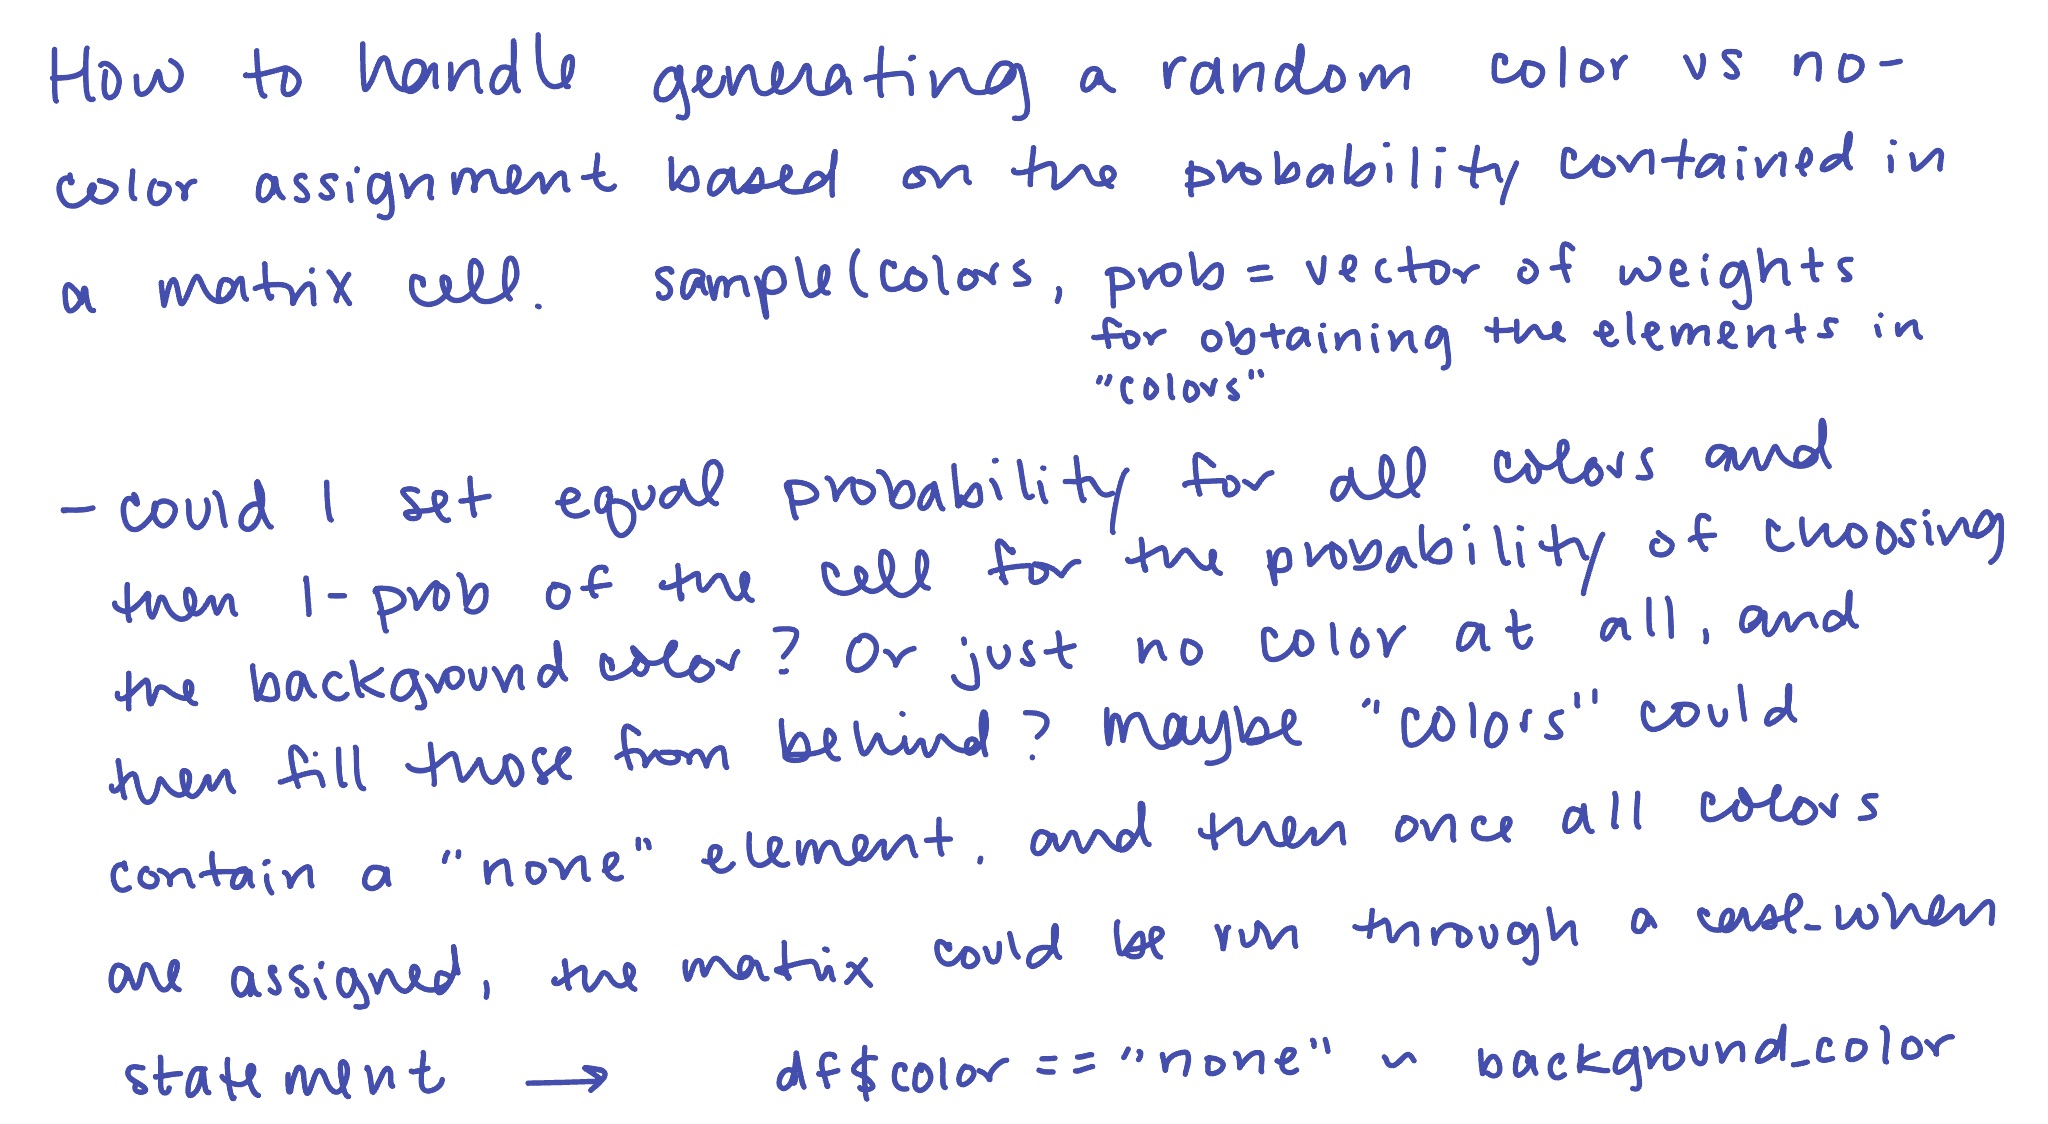 How to handle generating a random color vs no-
color assignment based on the probability contained in
a matrix cell. sample(colors, prob = vector of weights
for obtaining the elements in
"colors"
- could I set equal probability for all colors and
then 1-prob of the cell for the probability of choosing
the background color? Or just no color at all, and
then fill those from behind? Maybe "colors" could
contain a "none" element. and then once all colors
are assigned, the matrix could be run through a case_when
statement → df$color == "none" ~ background_color